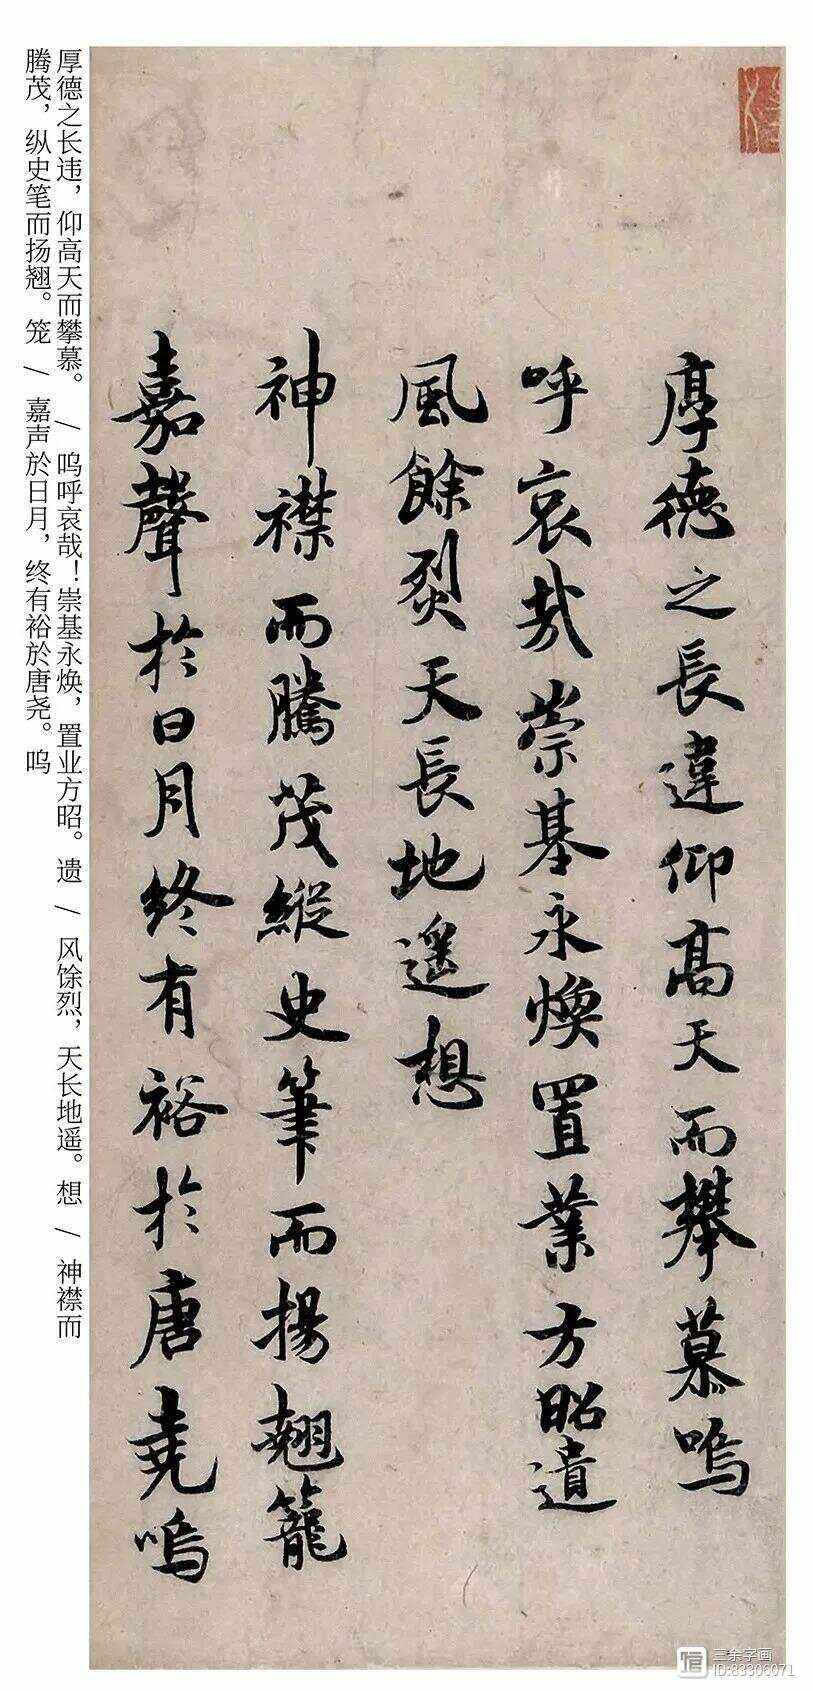 厚德之长违，仰高天而攀慕。 / 呜呼哀哉！崇基永焕，置业方昭。遗 / 风馀烈，天长地遥。想 / 神襟而
腾茂，纵史笔而扬翘。笼 / 嘉声於日月，终有裕於唐尧。呜
厚德之長違仰高天而攀慕嗚
呼哀哉崇基永煥置業方昭遺
風餘烈天長地遥想
神襟而騰茂縱史筆而揚翹籠
嘉聲於日月終有裕於唐堯嗚
三余字画
ID:83306071